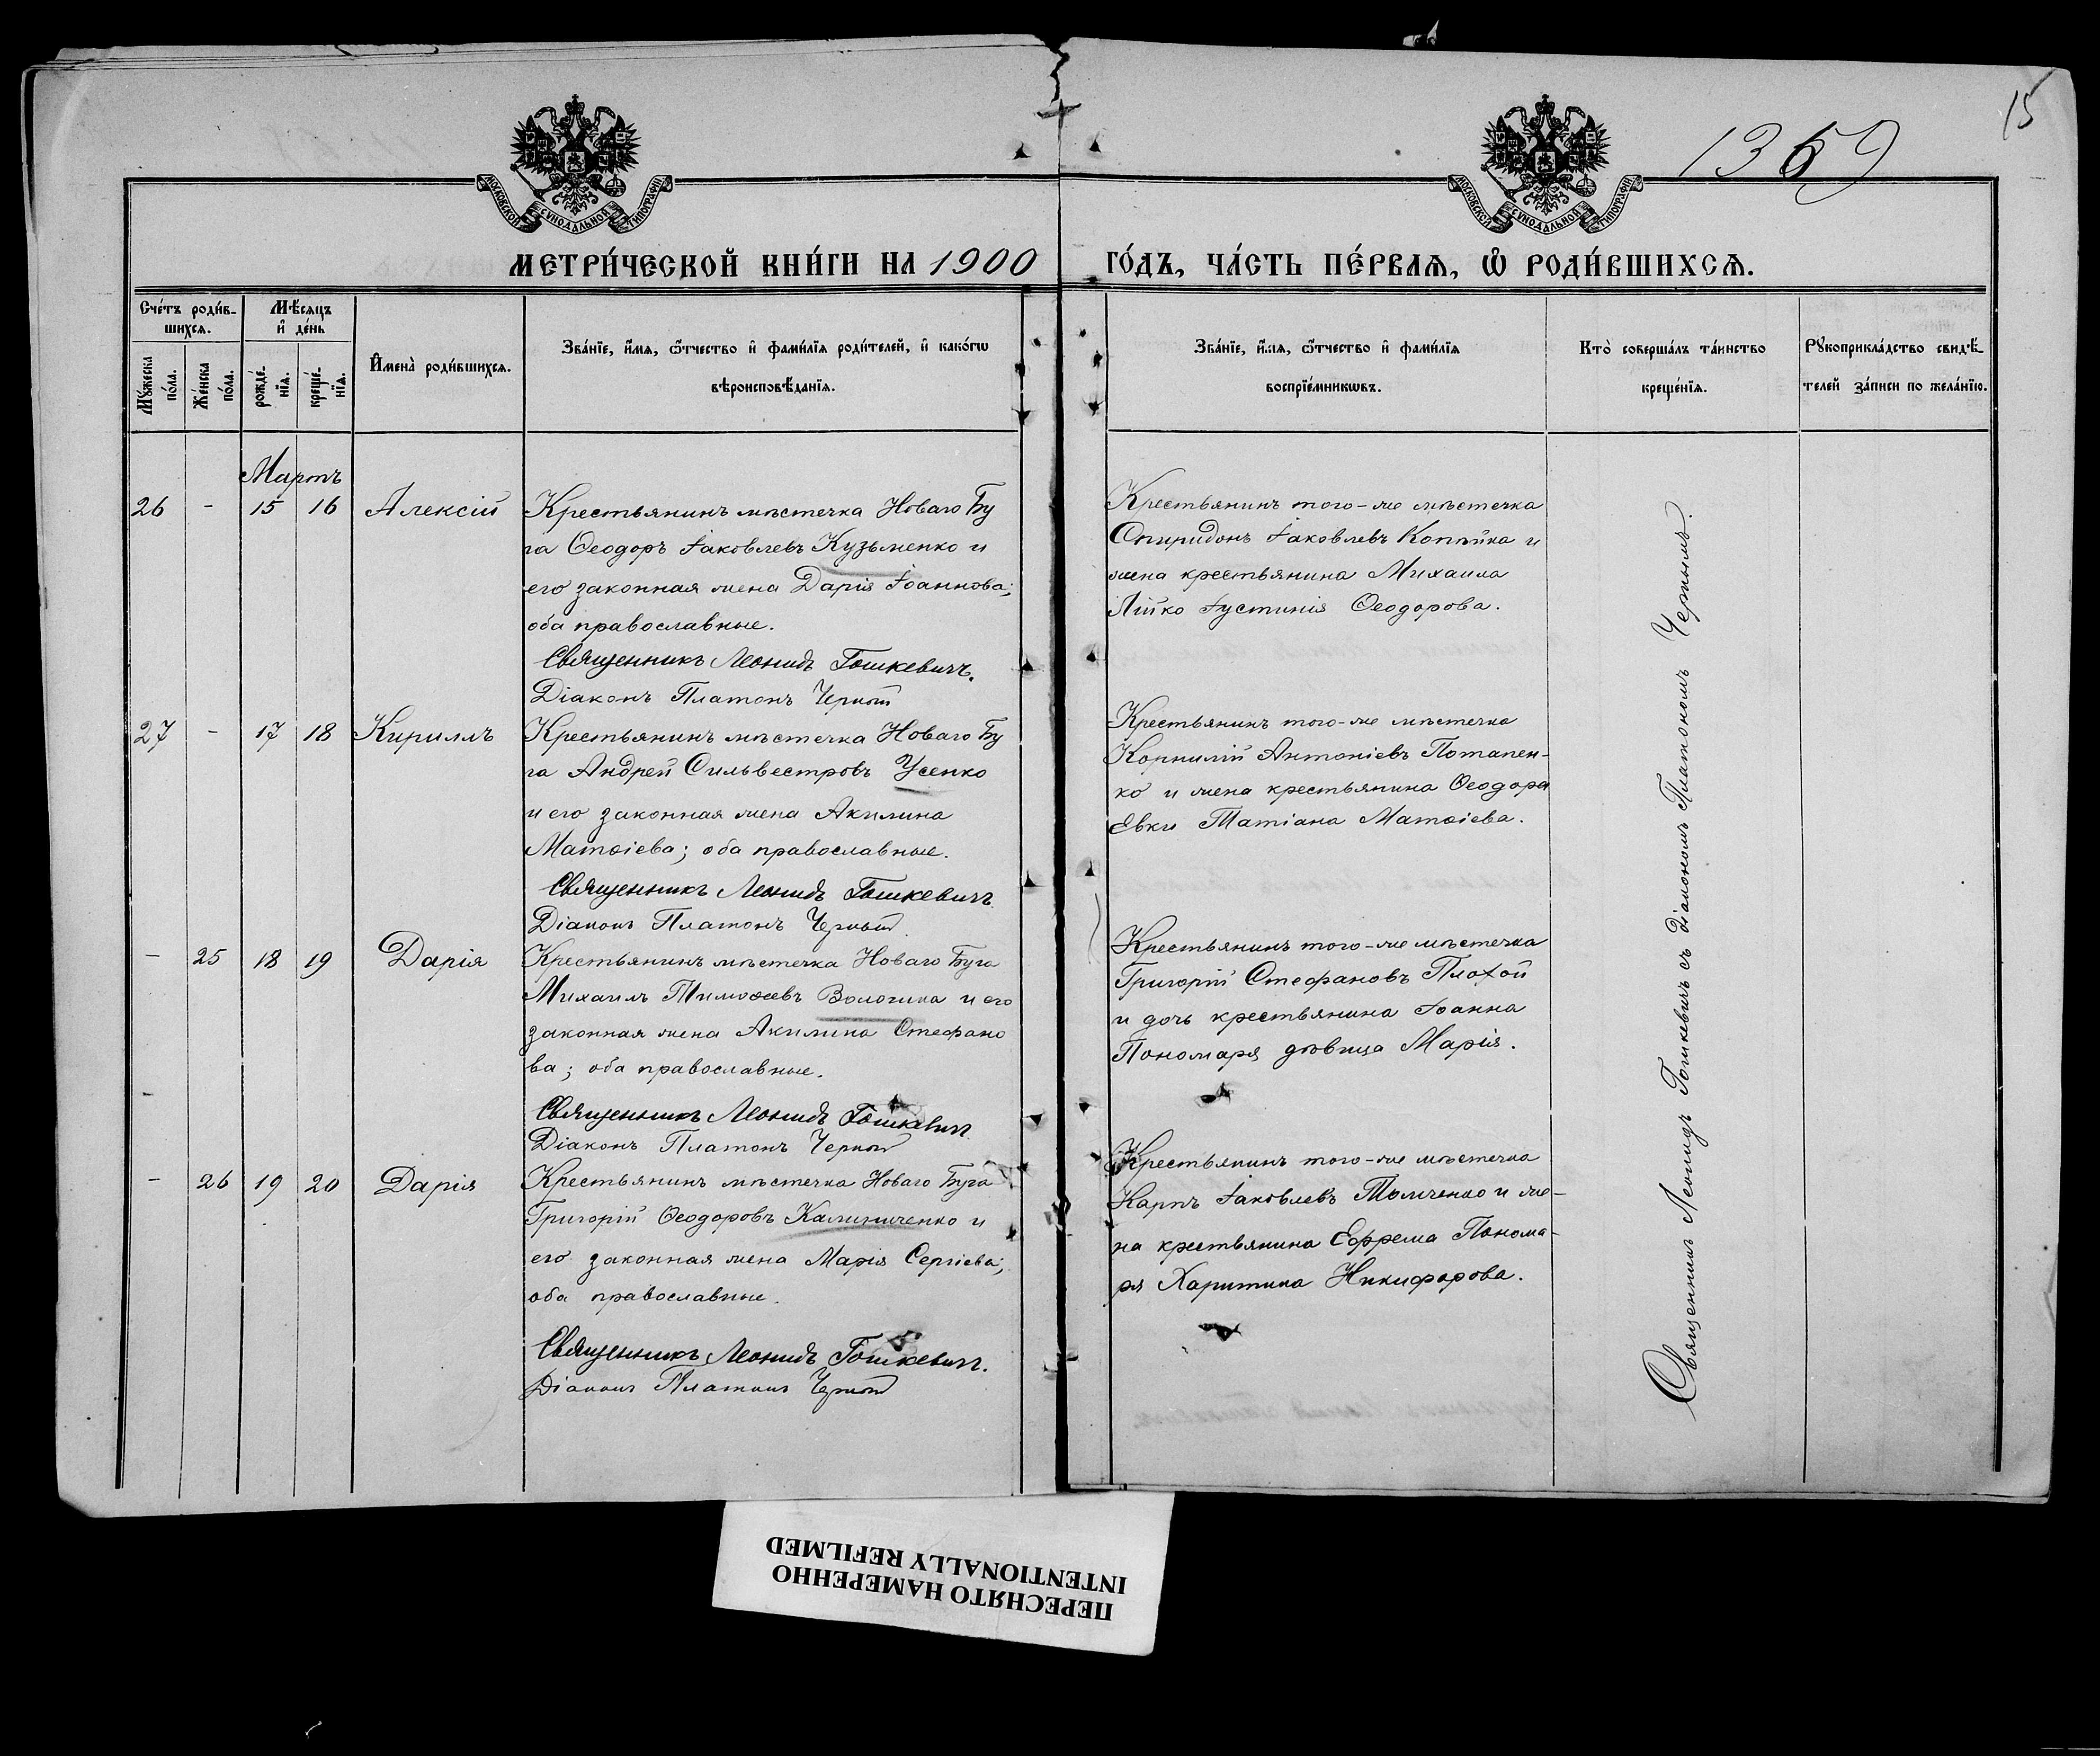 15
1369
МОСКОВСКОЙ СѴНОДАЛЬНОЙ ТИПОГРАФІИ
МОСКОВСКОЙ СѴНОДАЛЬНОЙ ТИПОГРАФІИ
МЕТРИ́ЧЕСКОЙ КНИ́ГИ НА 1900
ГО́ДЪ, ЧА́СТЬ ПЕ́РВАЯ, Ѡ҆ РОДИ́ВШИХСЯ.
Сче́тъ роди́в-
шихся.
Мꙋ́жеска по́ла.
Же́нска по́ла.
Мѣ́сяцъ
и҆ де́нь
рожде́-
нїя.
креще́-
нїя.
И҆мена̀ роди́вшихся.
Зва́нїе, и҆́мя, ѻ҆́тчество и҆ фами́лїя роди́телей, и҆ како́гѡ
вѣроисповѣ́данїя.
Зва́нїе, и҆́мя, ѻ҆́тчество и҆ фами́лїя
воспрїе́мникѡвъ.
Кто̀ соверша́лъ та́инство
креще́нїя.
Рꙋкоприкла́дство свидѣ́-
телей за́писи по жела́нїю.
Мартъ
26 - 15 16 Алексій
Крестьянинъ мѣстечка Новаго Бу
га Ѳеодоръ Іаковлевъ Кузьменко и
его законная жена Дарія Іоаннова;
оба православные.
Священникъ Леонидъ Гошкевичъ.
Діаконъ Платонъ Черный
Крестьянинъ того-же мѣстечка
Спиридонъ Іаковлевъ Копѣйка и
жена крестьянина Михаила
Лійко Іустинія Ѳеодорова.
27 - 17 18 Кириллъ
Крестьянинъ мѣстечка Новаго Бу
га Андрей Сильвестровъ Усенко
и его законная жена Акилина
Матѳіева; оба православные.
Священникъ Леонидъ Гошкевичъ
Діаконъ Платонъ Черный
Крестьянинъ того-же мѣстечка
Корнилій Антоніевъ Потапен-
ко и жена крестьянина Ѳеодора
Евки Татіана Матѳіева.
- 25 18 19 Дарія
Крестьянинъ мѣстечка Новаго Буга
Михаилъ Тимоѳеевъ Вологина и его
законная жена Акилина Стефано
ва; оба православные.
Священникъ Леонидъ Гошкевич
Діаконъ Платонъ Черный
Крестьянинъ того-же мѣстечка
Григорій Стефановъ Плохой
и дочь крестьянина Іоанна
Пономаря дѣвица Марія.
- 26 19 20 Дарія
Крестьянинъ мѣстечка Новаго Буга
Григорій Ѳеодоровъ Калиниченко и
его законная жена Марія Сергіева;
оба православные.
Священникъ Леонидъ Гошкевич.
Діаконъ Платонъ Черный
Крестьянинъ того-же мѣстечка
Карпъ Іаковлевъ Толченко и же-
на крестьянина Ефрема Понома-
ря Харитина Никифорова.
Священникъ Леонидъ Гошкевичъ съ діакономъ Платономъ Чернымъ.
ПЕРЕСНЯТО НАМЕРЕННО
INTENTIONALLY REFILMED